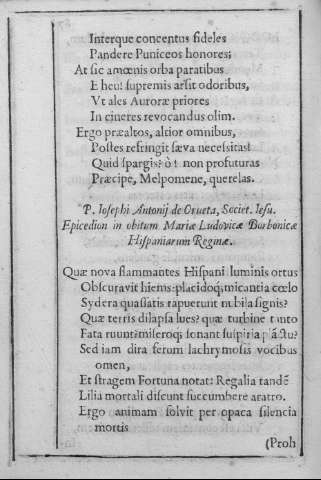 Interque concentus fideles
Pandere Puniceos honores;
At sic amœnis orba paratibus
E heu! supremis arsit odoribus,
Vt ales Auroræ priores
In cineres revocandus olim.
Ergo præaltos, altior omnibus,
Postes refringit sæva necessitas!
Quid spargis? ò! non profuturas
Præcipe, Melpomene, querelas.
P. Iosephi Antonij de Orueta, Societ. Iesu.
Epicedion in obitum Mariæ Ludovicæ Borbonicæ
Hispaniarum Reginæ.
Quæ nova flammantes Hispani luminis ortus
Obscuravit hiems: placidoq; micantia cœlo
Sydera quassatis rapuerunt nubila signis?
Quæ terris dilapsa lues? quæ turbine tanto
Fata ruunt? miseroq; sonant suspiria plāctu?
Sed iam dira ferum lachrymosis vocibus
omen,
Et stragem Fortuna notat: Regalia tandē
Lilia mortali discunt succumbere aratro.
Ergo animam solvit per opaca silencia
mortis
(Proh